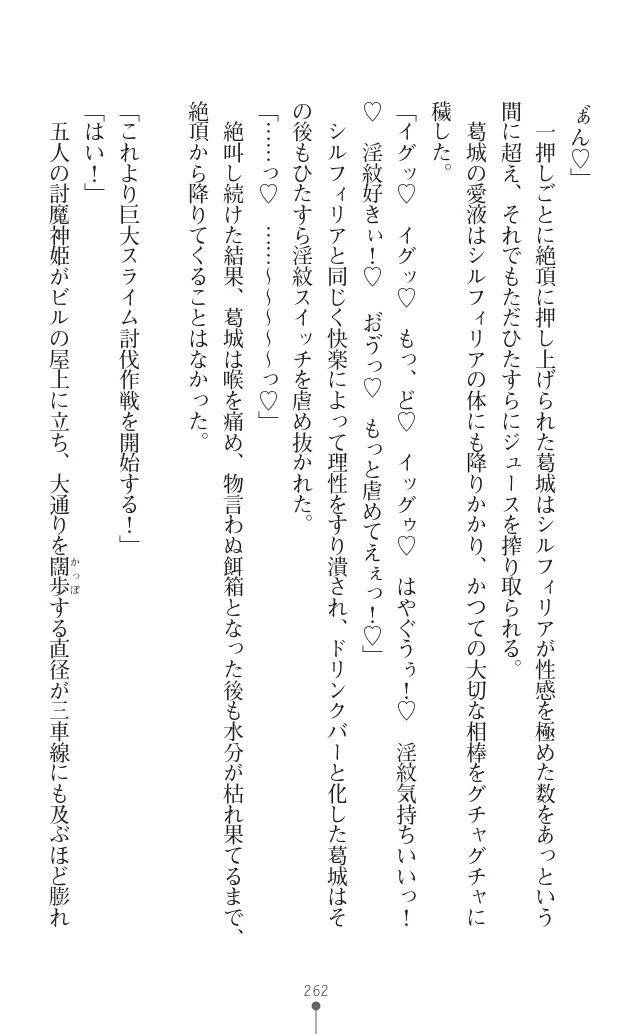 ぁ゙ん♡」
　一押しごとに絶頂に押し上げられた葛城はシルフィリアが性感を極めた数をあっという
間に超え、それでもただひたすらにジュースを搾り取られる。
　葛城の愛液はシルフィリアの体にも降りかかり、かつての大切な相棒をグチャグチャに
穢した。
「イグッ♡　イグッ♡　もっ、ど♡　イッグゥ♡　はやぐうぅ！♡　淫紋気持ちいいっ！
♡　淫紋好きぃ！♡　お゙ゔっ♡　もっと虐めてえぇっ！♡」
　シルフィリアと同じく快楽によって理性をすり潰され、ドリンクバーと化した葛城はそ
の後もひたすら淫紋スイッチを虐め抜かれた。
「……っ♡　……～～～～～っ♡」
　絶叫し続けた結果、葛城は喉を痛め、物言わぬ餌箱となった後も水分が枯れ果てるまで、
絶頂から降りてくることはなかった。
「これより巨大スライム討伐作戦を開始する！」
「はい！」
　五人の討魔神姫がビルの屋上に立ち、大通りを闊歩する直径が三車線にも及ぶほど膨れ
かっぽ
262